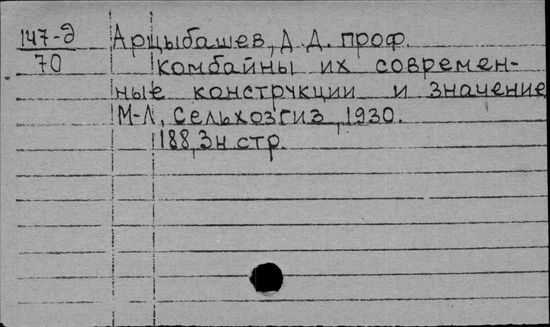 147-д Арцыбашев, Д. Д. проф.
70 комбайны их современ-
ные конструкции и значение
М-Л, Сельхозгиз, 1930.
188, 3н стр.